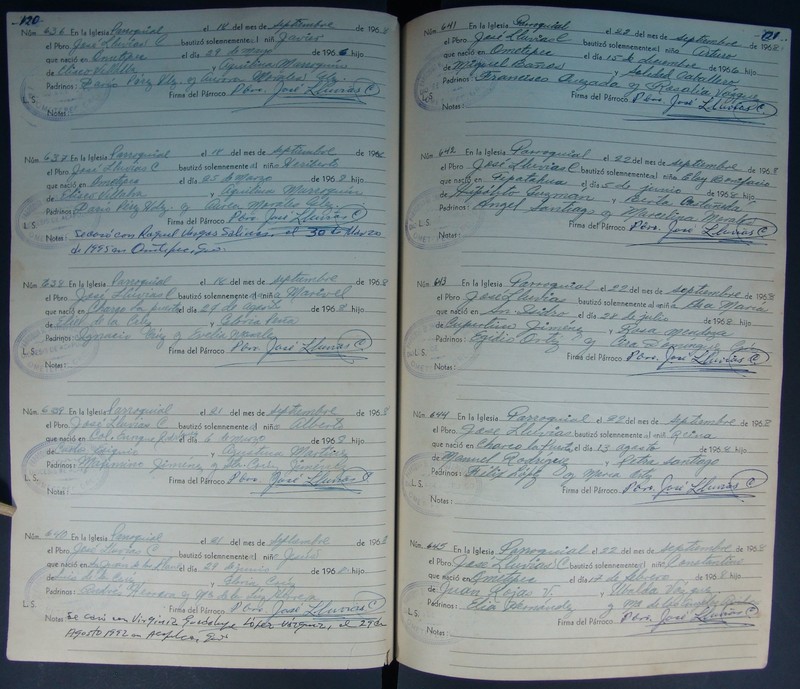 120
Núm. 636 En la Iglesia Parroquial el 18 del mes de septiembre 1968
el Pbro. José Lluvias C bautizó solemnemente al niñ Javier
que nació en Ometepec el día 29 de mayo de 1966 hijo
de Eliseo Villalba y Aquilina Marroquín
Padrinos: Darío Pérez Hdz. y Aurora Morales Glz.
L. S. Firma del Párroco Pbro. José Lluvias C
Notas
Núm. 637 En la Iglesia Parroquial el 18 del mes de septiembre 196
el Pbro. José Lluvias C bautizó solemnemente al niño Heriberto
que nació en Ometepec el día 25 de Marzo de 1968 hijo
de Eliseo Villalba y Aquilina Marroquín
Padrinos: Darío Pérez Hdz. y Aurora Morales Glz.
L. S. Firma del Párroco Pbro. José Lluvias C
Notas: Se casó con Raquel Vargas Salinas, el 30 de Marzo
de 1995 en Ometepec, Gro.
Núm. 638 En la Iglesia Parroquial el 18 del mes de septiembre 1968
el Pbro. José Lluvias C bautizó solemnemente a niña Marivel
que nació en Charco la puerta el día 29 de agosto de 1968 hijo
de De la Cruz y Gloria
Padrinos: Ignacio Cruz y Evelia
L. S. Firma del Párroco Pbro. José Lluvias C
Notas:
Núm. 639 En la Iglesia Parroquial el 21 del mes de septiembre 1968
el Pbro. José Lluvias C bautizó solemnemente al niñ Alberto
que nació en el día 6 de marzo de 1968 hijo
de y Agustina Martínez
Padrinos: Maximino Jiménez y Jiménez
L. S. Firma del Párroco Pbro. José Lluvias C
Notas:
Núm. 640 En la Iglesia Parroquial el 21 del mes de septiembre 1968
el Pbro. José Lluvias C bautizó solemnemente al niño
que nació en el día 29 de junio de 196 hijo
de Luis de la Cruz y Gloria Cruz
Padrinos: Andrés Herrera y Ma. de la Luz Herrera
L. S. Firma del Párroco Pbro. José Lluvias C
Notas: Se casó con Virginia Guadalupe López Vázquez, el 29 de
Agosto 1992 en Acapulco, Gro.
121
Núm. 641 En la Iglesia Parroquial el 22 del mes de septiembre 1968
el Pbro. José Lluvias C bautizó solemnemente al niño Arturo
que nació en Ometepec el día 15 de diciembre 1966 hijo
de Miguel Baños y Soledad Caballero
Padrinos: Francisco Quezada y Rosalia Vásquez
L. S. Firma del Párroco Pbro. José Lluvias C
Notas:
Núm. 642 En la Iglesia Parroquial el 22 del mes de septiembre 1968
el Pbro. José Lluvias C bautizó solemnemente al niño Eloy Bonifacio
que nació en el día 5 de junio de 1968 hijo
de Hipólito Guzmán y Berta
Padrinos: Angel Santiago y Marcelina
L. S. Firma del Párroco Pbro. José Lluvias C
Notas:
Núm. 643 En la Iglesia Parroquial el 22 del mes de septiembre 1968
el Pbro. José Lluvias bautizó solemnemente al niña Elia María
que nació en San Isidro el día 28 de julio de 1968 hijo
de Cupertino Jiménez y Rosa Mendoza
Padrinos: Egidio Ortiz y Domínguez
L. S. Firma del Párroco Pbro. José Lluvias C
Notas:
Núm. 644 En la Iglesia Parroquial el 22 del mes de septiembre 1968
el Pbro. José Lluvias bautizó solemnemente al niñ Reina
que nació en Charco la Puerta el día 23 agosto de 1968 hijo
de Manuel Rodríguez y Petra Santiago
Padrinos: Félix López y María Ortiz
L. S. Firma del Párroco Pbro. José Lluvias C
Notas:
Núm. 645 En la Iglesia Parroquial el 22 del mes de septiembre 1968
el Pbro. José Lluvias C bautizó solemnemente al niño Constantino
que nació en Ometepec el día 17 de febrero de 1968 hijo
de Juan Rojas V. y Vásquez
Padrinos: Elia Hernández y
L. S. Firma del Párroco Pbro. José Lluvias C
Notas: